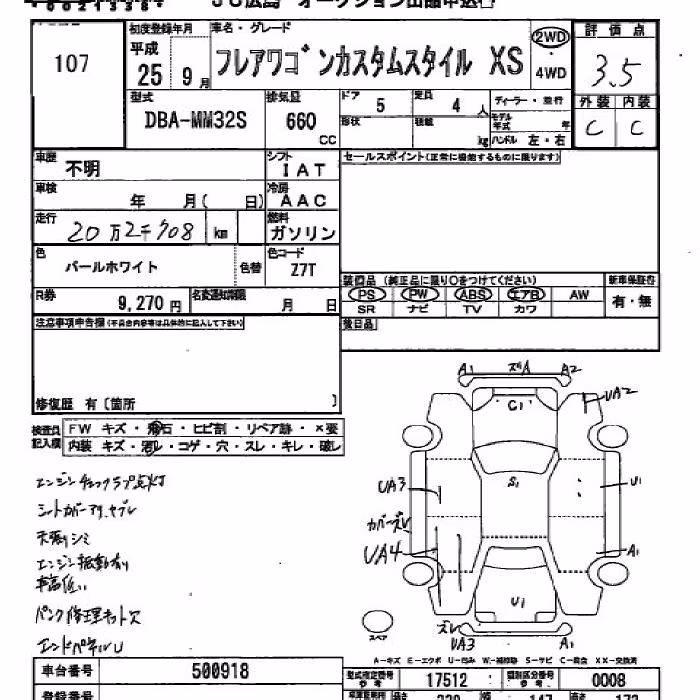 JU広島 オークション出品申込
107
初度登録年月
平成
25 9月
車名・グレード
フレアワゴンカスタムスタイル XS
2WD
4WD
評価点
3.5
外装 内装
C C
型式
DBA-MM32S
排気量
660
CC
ドア
5
定員
4人
形状
積載
kg
ディーラー・並行
モデル年式
年
ハンドル 左・右
車歴
不明
シフト
IAT
車検
年 月( 日)
冷房
AAC
走行
20万2千708 km
燃料
ガソリン
色
パールホワイト
色替
色コード
Z7T
R券
9,270円
名変通知期限
月 日
セールスポイント(正常に機能するものに限ります)
装備品 (純正品に限り○をつけてください)
新車保証書
PS PW ABS エアB AW
有・無
SR ナビ TV カワ
後日品
注意事項申告欄(不具合内容等は具体的に記入して下さい)
修復歴 有〔箇所 〕
検査員記入欄
FW キズ・飛石・ヒビ割・リペア跡・×要
内装 キズ・汚レ・コゲ・穴・スレ・キレ・破レ
エンジンチェックランプ点灯
シートカバーアリ、ヤブレ
天張リシミ
エンジン振動有
車高低い
パンク修理キット欠
エンドパネルU
A1 ズA A2
UA2
C1
UA3
S1
U1
カバーズレ
UA4
A1
U1
ズレ
UA3
A1
スペア
A-キズ E-エクボ U-凹み W-補修跡 S-サビ C-腐食 XX-交換済
車台番号
500918
型式指定番号
参考
17512
類別区分番号
参考
0008